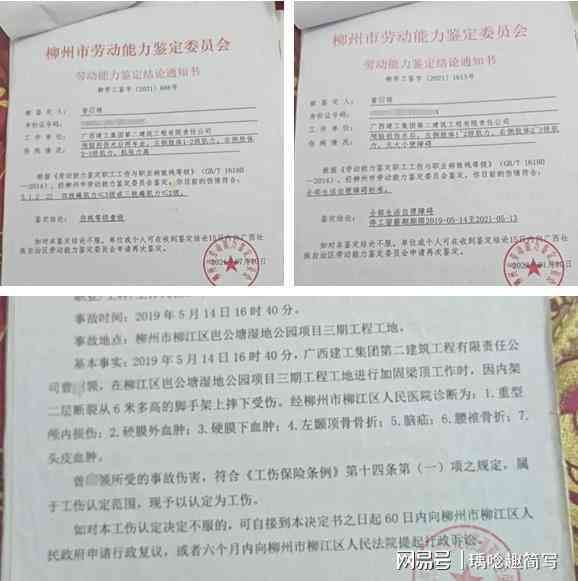 柳州市劳动能力鉴定委员会
劳动能力鉴定结论通知书
柳劳工鉴字（2021）
被 鉴 定 人：
身份证号码：
工 作 单 位：广西建工集团第二建筑工程有限责任公司
伤 残 情 况：
根据《劳动能力鉴定职工工伤与职业病致残等级》（GB/T 16180
-2014），经柳州市劳动能力鉴定委员会鉴定，你目前的伤情符合：
鉴定结论：伤残等级壹级
如对本鉴定结论不服，单位或个人可在收到鉴定结论15日内向广西壮
族自治区劳动能力鉴定委员会申请再次鉴定。
柳州市劳动能力鉴定委员会
劳动能力鉴定结论通知书
柳劳工鉴字（2021）1613号
被 鉴 定 人：
身份证号码：
工 作 单 位：广西建工集团第二建筑工程有限责任公司
伤 残 情 况：
根据《劳动能力鉴定职工工伤与职业病致残等级》（GB/T 16180
-2014），经柳州市劳动能力鉴定委员会鉴定，你目前的伤情符合：
全部生活自理障碍标准。
鉴定结论：全部生活自理障碍
停工留薪期期限2019-05-14至2021-05-13
如对本鉴定结论不服，单位或个人可在收到鉴定结论15日内向广西壮
族自治区劳动能力鉴定委员会申请再次鉴定。
事故时间：2019年5月14日16时40分。
事故地点：柳州市柳江区岜公塘湿地公园项目三期工程工地。
基本事实：2019年5月14日16时40分，广西建工集团第二建筑工程有限责任公
司曾 领，在柳江区岜公塘湿地公园项目三期工程工地进行加固梁顶工作时，因内架
二层断裂从6米多高的脚手架上摔下受伤。经柳州市柳江区人民医院诊断为：1.重型
颅内损伤；2.硬膜外血肿；3.硬膜下血肿；4.左颞顶骨骨折；5.脑疝；6.腰椎骨折；7.
头皮血肿。
曾 领所受的事故伤害，符合《工伤保险条例》第十四条第（一）项之规定，属
于工伤认定范围，现予以认定为工伤。
如对本工伤认定决定不服的，可自接到本决定书之日起60日内向柳州市柳江区人
民政府申请行政复议，或者六个月内向柳州市柳江区人民法院提起行政诉讼。
网易号 | 瑀唸趣简写